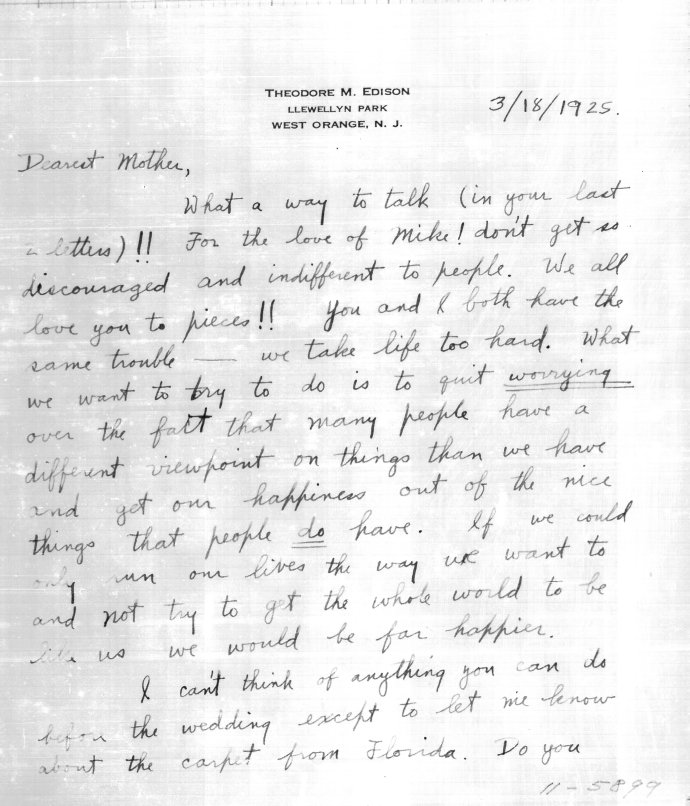 THEODORE M. EDISON
LLEWELLYN PARK
WEST ORANGE, N. J.
3/18/1925.
Dearest Mother,
What a way to talk (in your last
2 letters)!! For the love of Mike! don't get so
discouraged and indifferent to people. We all
love you to pieces!! You and I both have the
same trouble — we take life too hard. What
we want to try to do is to quit worrying
over the fact that many people have a
different viewpoint on things than we have
and get our happiness out of the nice
things that people do have. If we could
only run our lives the way we want to
and not try to get the whole world to be
like us we would be far happier.
I can't think of anything you can do
before the wedding except to let me know
about the carpet from Florida. Do you
11-5899